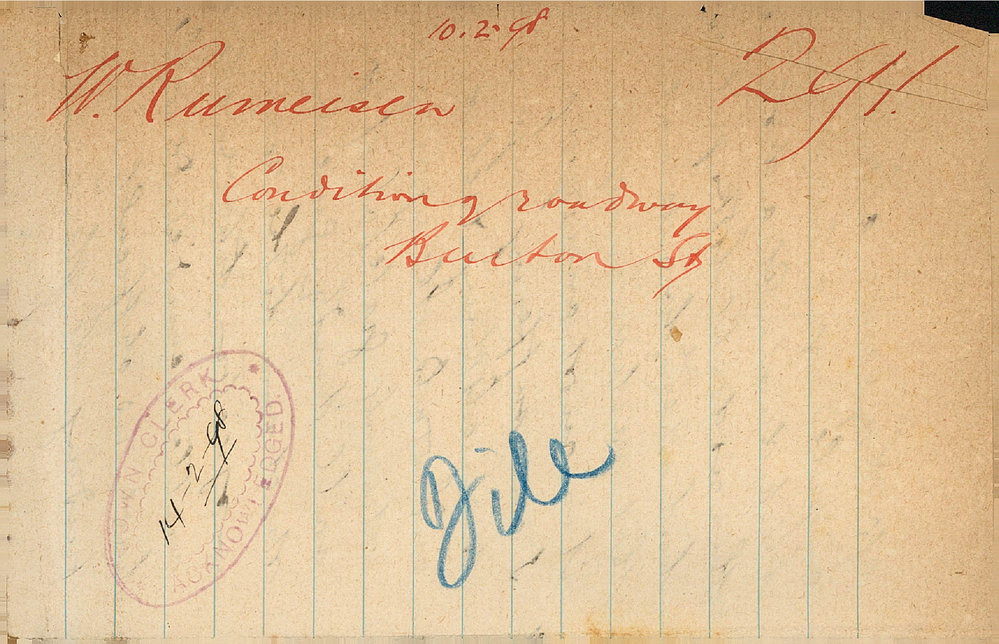 10.2.98
W. Rumeisen 291.
Condition of roadway
Burton St
TOWN CLERK
14-2-98
ACKNOWLEDGED
File